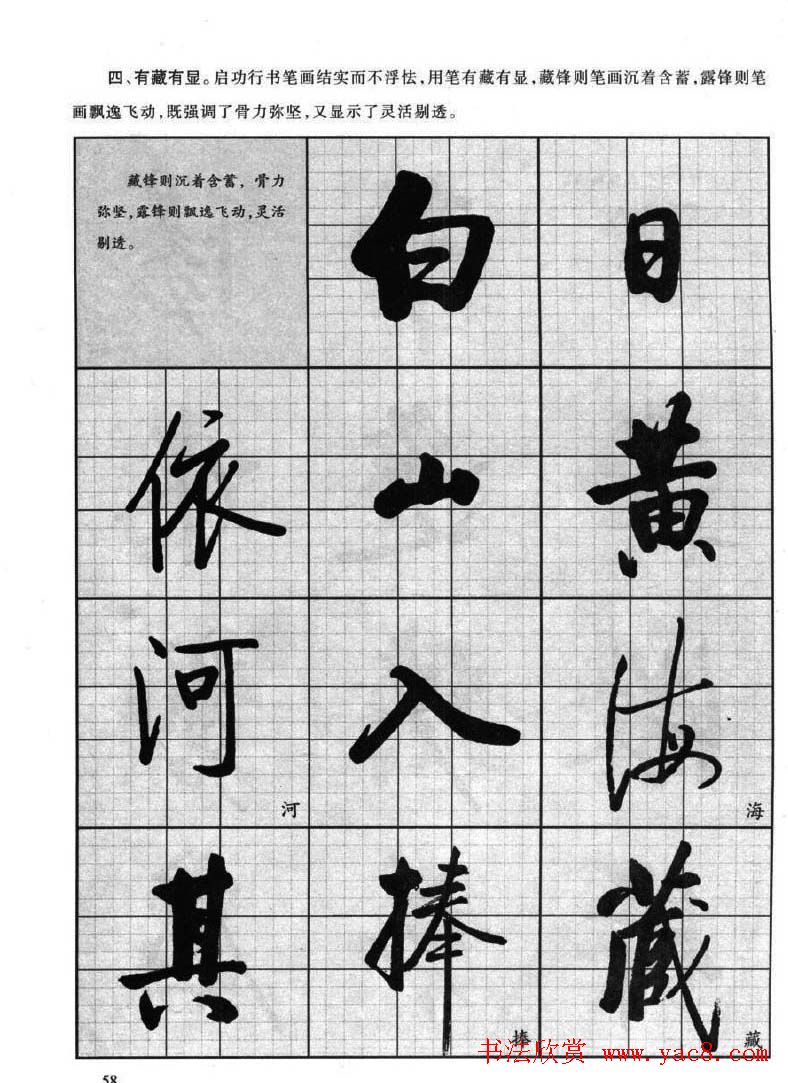 四、有藏有显。启功行书笔画结实而不浮怯,用笔有藏有显,藏锋则笔画沉着含蓄,露锋则笔
画飘逸飞动,既强调了骨力弥坚,又显示了灵活剔透。
藏锋则沉着含蓄,骨力
弥坚,露锋则飘逸飞动,灵活
剔透。
白 日
依 山 黄
河 入 海
河 海
其 捧 藏
捧 藏
书法欣赏 www.yac8.com
58